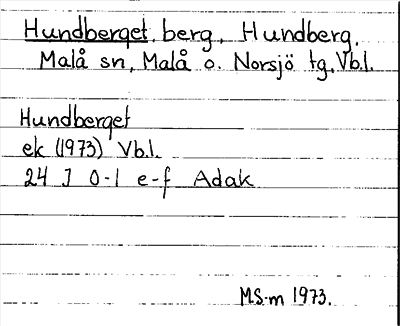 Hundberget, berg, Hundberg,
Malå sn, Malå o. Norsjö tg, Vb.l.
Hundberget
ek (1973) Vb.l.
24 J 0-1 e-f Adak
MS-m 1973.